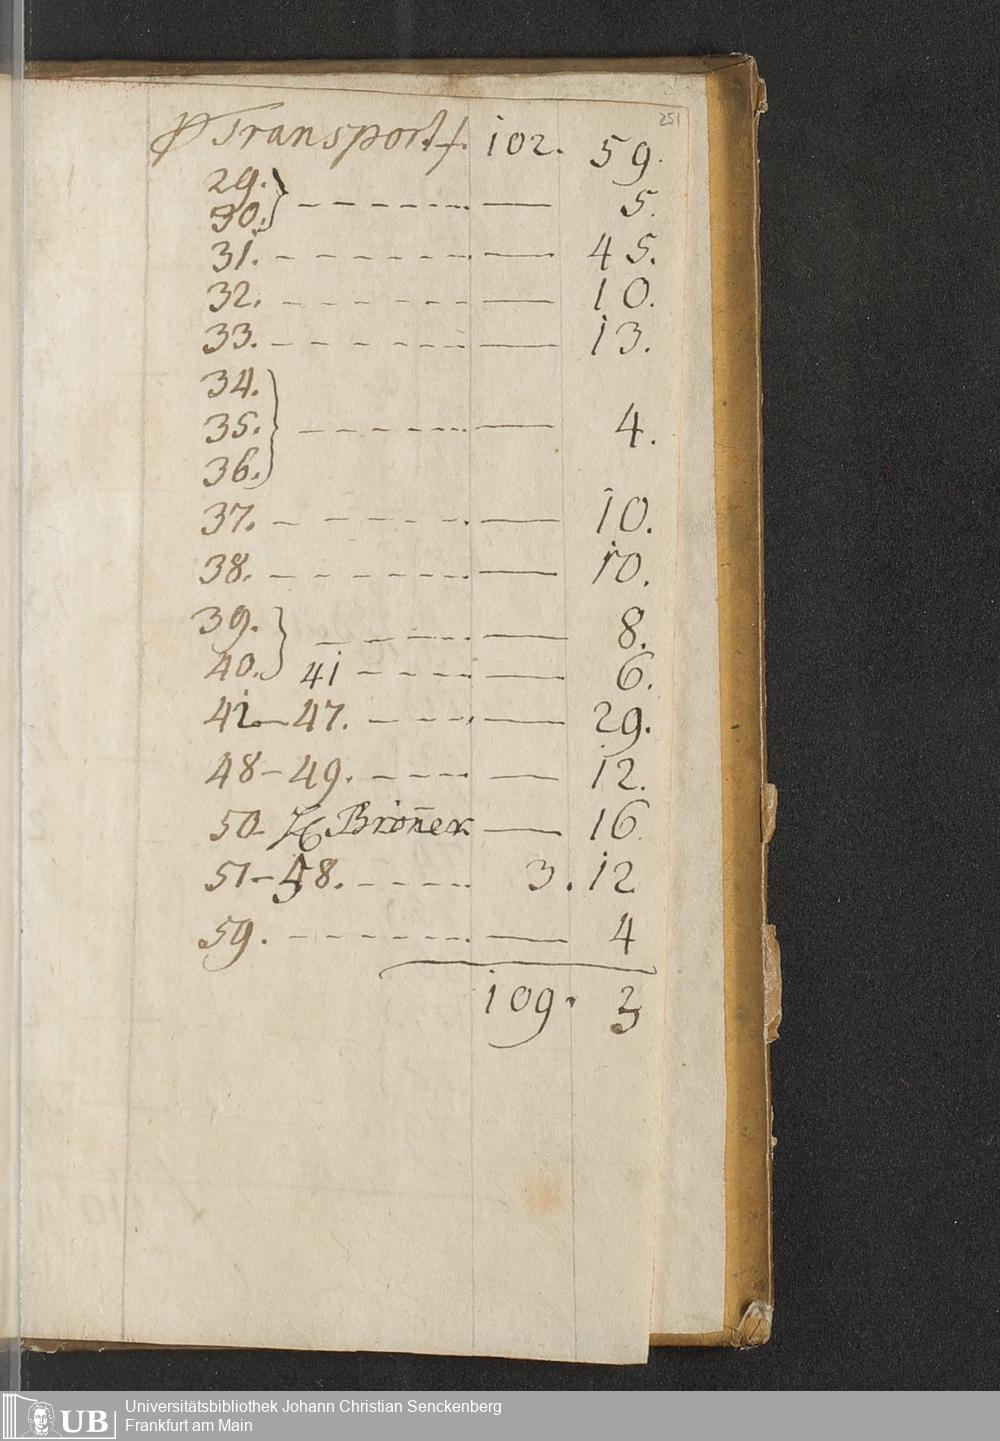 251
P Transport f. 102. 59.
29.
30.} - - - - - - - — 5.
31. - - - - - - - — 45.
32. - - - - - - - — 10.
33. - - - - - - - — 13.
34.
35.} - - - - - - - — 4.
36.
37. - - - - - - - — 10.
38. - - - - - - - — 10.
39.} - - - - - - — 8.
40. 41 - - - - - — 6.
42 - 47. - - - - — 29.
48 - 49. - - - - — 12.
50 - H Bron̄er — 16.
51 - 58. - - - - - 3. 12
59. - - - - - - - — 4
109. 3
UB
Universitätsbibliothek Johann Christian Senckenberg
Frankfurt am Main